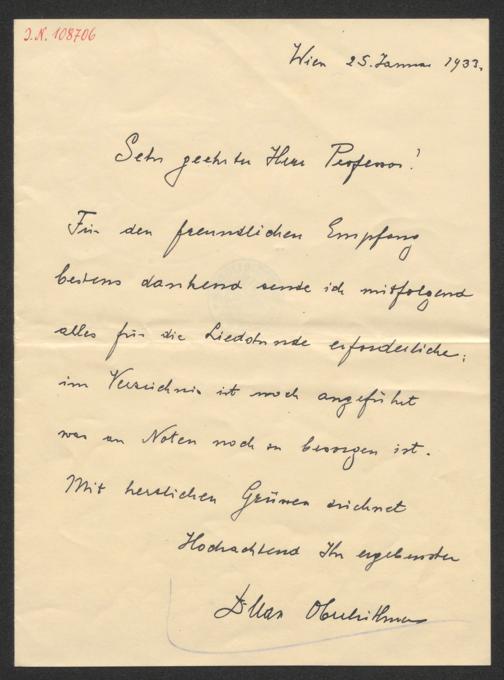 J.N. 108706
Wien 25. Januar 1933.
Sehr geehrter Herr Professor!
Für den freundlichen Empfang
bestens dankend sende ich mitfolgend
alles für die Liedstunde erforderliche;
im Verzeichnis ist noch angeführt
was an Noten noch zu besorgen ist.
Mit herzlichen Grüssen zeichnet
Hochachtend Ihr ergebenster
Dr Max Oberleithner